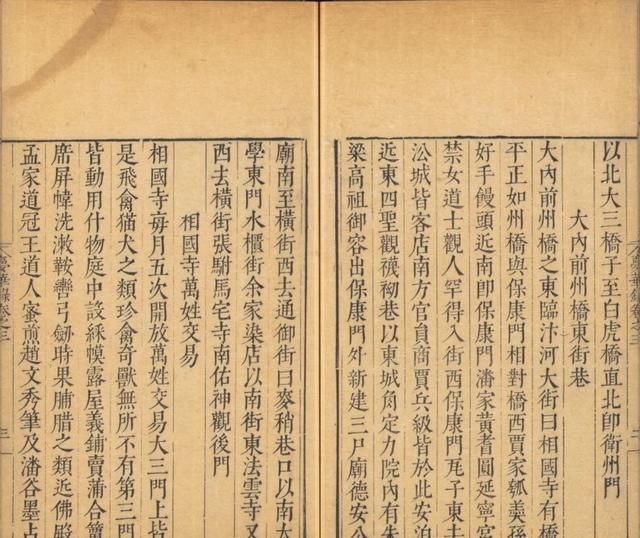 以北大三橋子至白虎橋直北卽衛州門
大內前州橋東街巷
大內前州橋之東臨汴河大街曰相國寺有橋
平正如州橋與保康門相對橋西賈家瓠羹孫
好手饅頭近南卽保康門潘家黃耆圓延寧宮
禁女道士觀人罕得入街西保康門瓦子東去
㳂城皆客店南方官員商賈兵級皆於此安泊
近東四聖觀襪袎巷以東城角定力院內有朱
梁高祖御容出保康門外新建三尸廟德安公
廟南至橫街西去通御街曰麥稍巷口以南大
學東門水櫃街余家染店以南街東法雲寺又
西去橫街張駙馬宅寺南佑神觀後門
相國寺萬姓交易
相國寺每月五次開放萬姓交易大三門上皆
是飛禽猫犬之類珍禽奇獸無所不有第三門
皆動用什物庭中設綵幙露屋義鋪賣蒲合簟
席屏幃洗漱鞍轡弓劒時果脯腊之類近佛殿
孟家道冠王道人蜜煎趙文秀筆及潘谷墨占